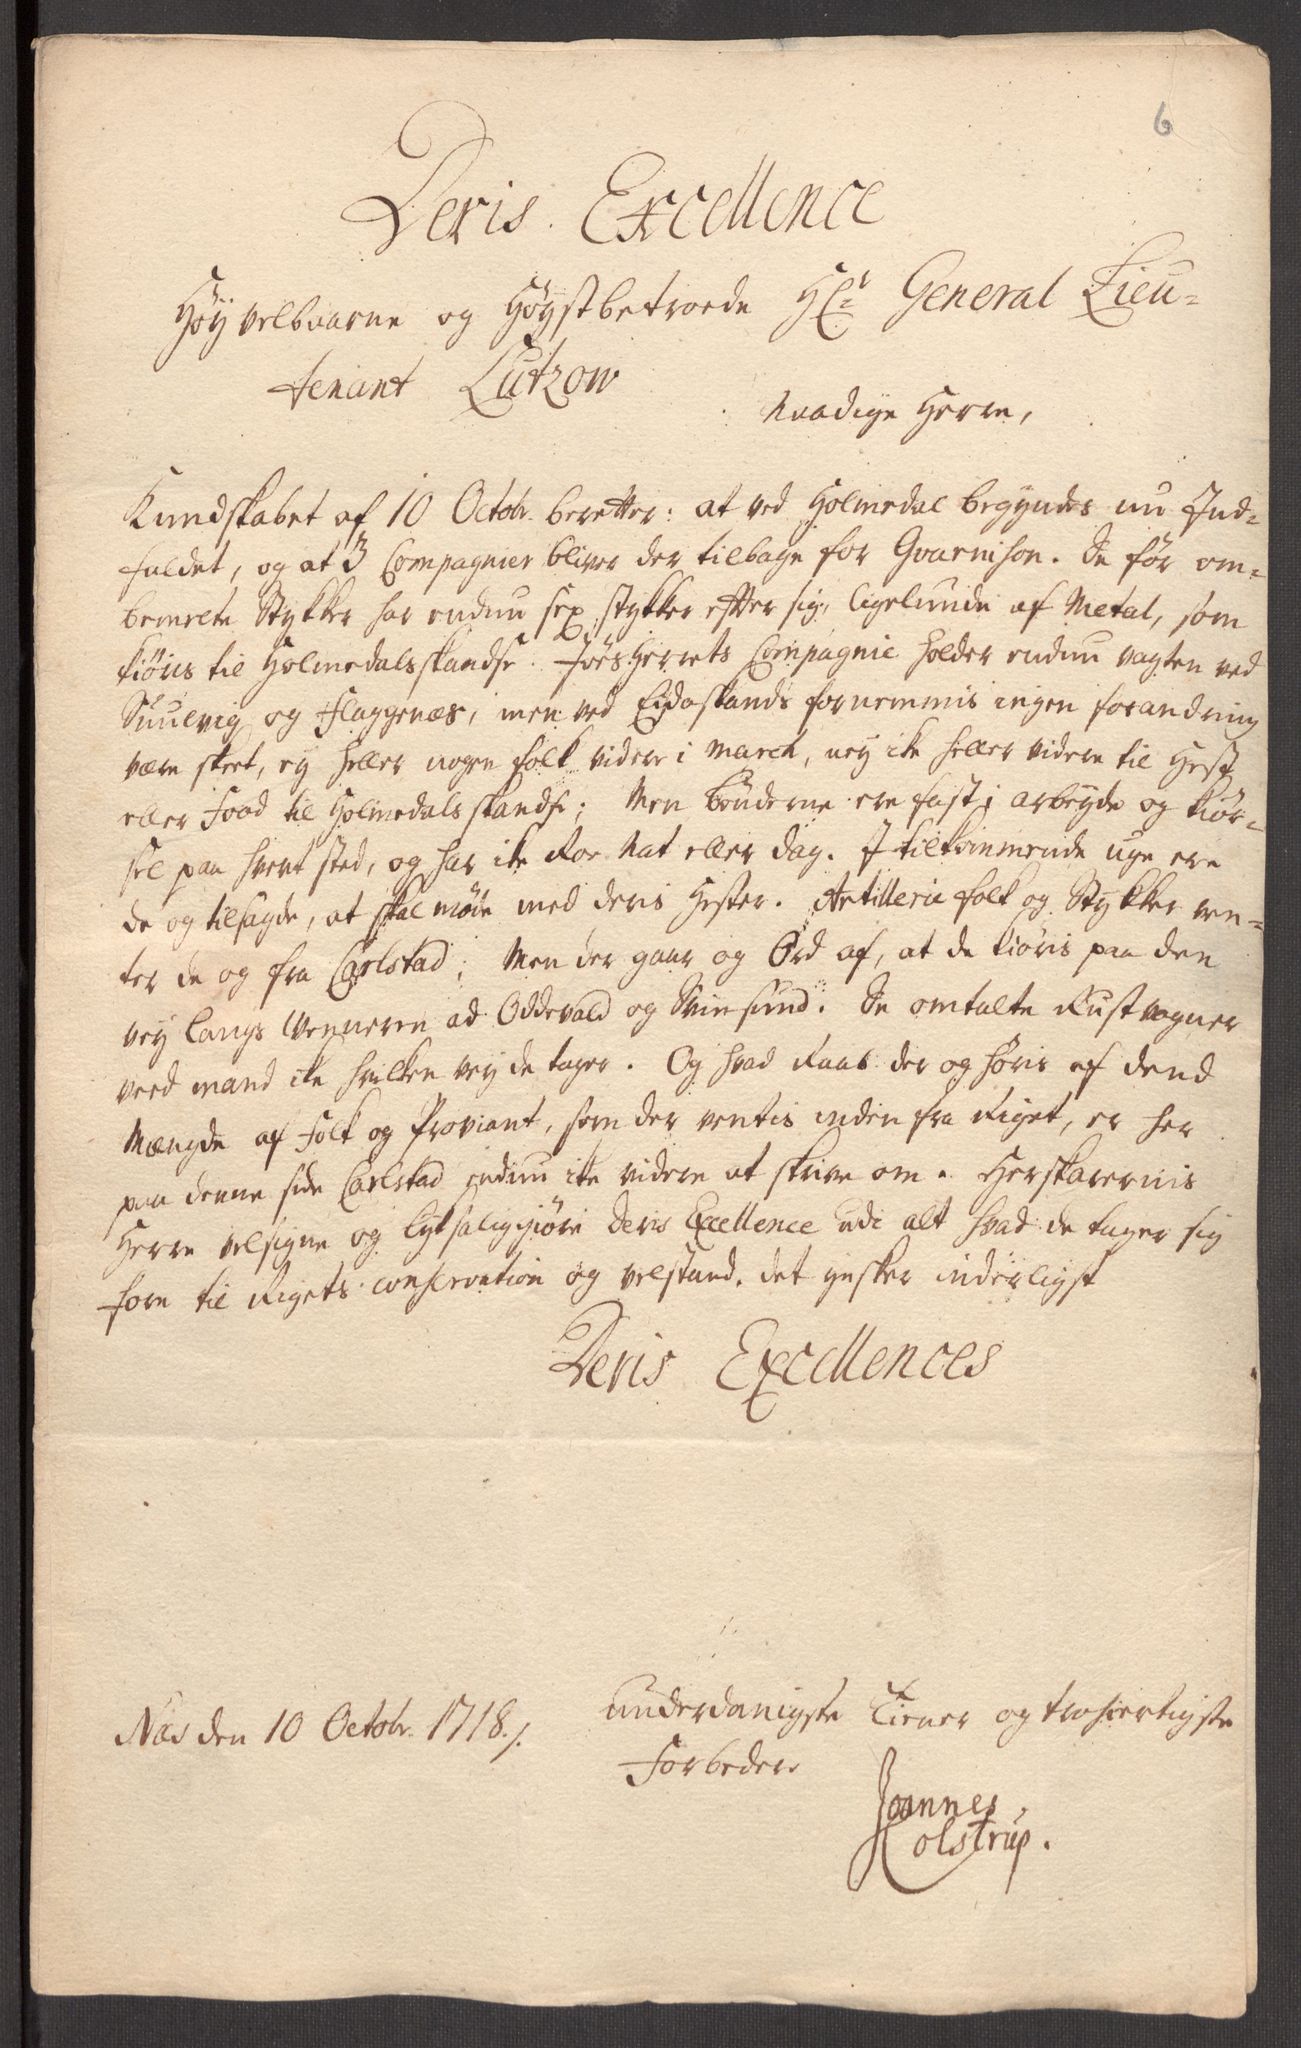 6
Deris Excellence
Høyvelbaarne og Høystbetroede Hr. General Lieu-
tenant Lutzow
Naadige Herre,
Kundskabet af 10 Octobr. beretter: at ved Holmedal begyndes nu Ind-
faldet, og at 3 Compagnier bliver der tilbage for Gvarnison. De før om-
bemelte Stykker har endnu sex stykker effter sig, ligelunde af Metal, som
kiøris til Holmedalsskandse. Joesherrets Compagnie holder endnu vagten ved
Suulvig og Flaggenæs, men ved Eidaskands fornemmis ingen forandring
være skeet, ey heller nogen folk videre i March, ney ike heller videre til Hest
eller Food til Holmedals skandse; Men bønderne ere fast i arbeyde og kiør-
sel paa hvert sted, og har ike Roe Nat eller dag. I tilkommende uge ere
de og tilsagde, at skal møde med deris Hester. Artillerie folk og Stykker ven-
ter de og fra Carlstad; Men der gaar og Ord af, at de kiøris paa den
vey langs Wenneren ad Oddevald og Svinsund. De omtalte Rustvogner
veed mand ike hvilken vey de tager. Og hvad Raab der og høris af dend
Mængde af Folk og Proviant, som der ventis inden fra Riget, er her
paa denne side Carlstad endnu ike videre at skrive om. Herskarernis
Herre velsigne og lyksaliggiøre Deris Excellence udi alt hvad de tager sig
fore til Rigets conservation og velstand. det ynsker inderligst
Deris Excellences
Næs den 10 Octobr. 1718./.
underdanigste Tiener og trohiertigste
Forbedere
Joannes
Kolstrup.